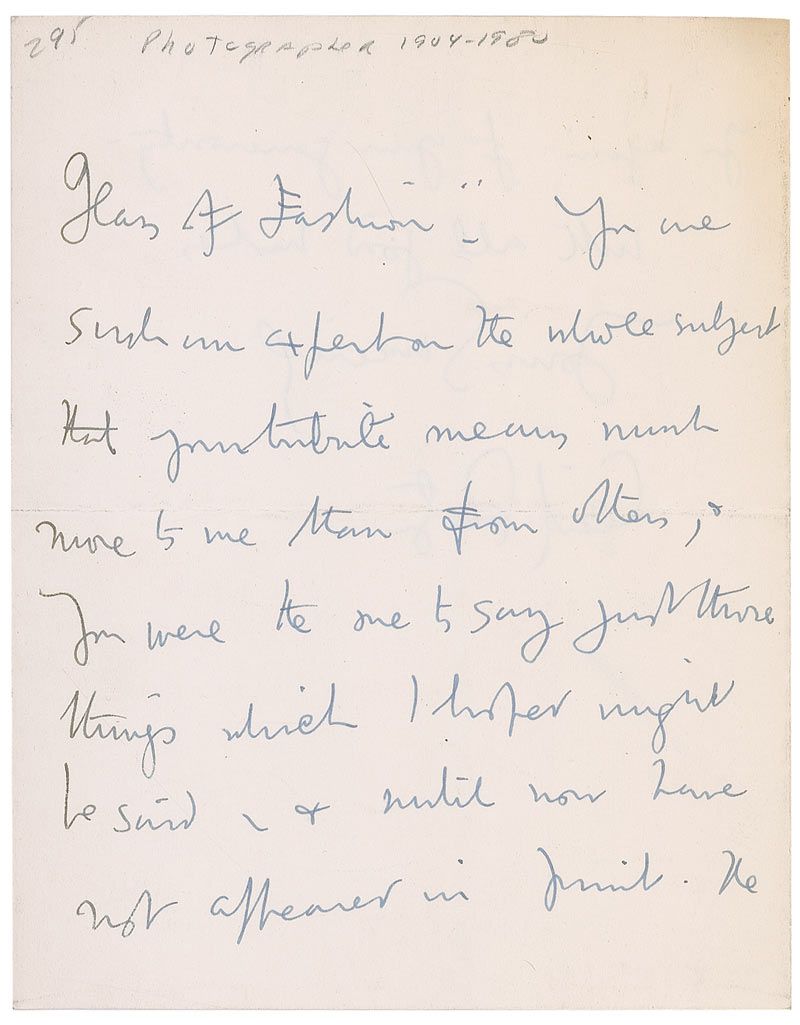 295 Photographer 1904-1980
Glass of Fashion". You are
such an expert on the whole subject
that your tribute means much
more to me than from others, &
you were the one to say just those
things which I hoped might
be said - & until now have
not appeared in print. The